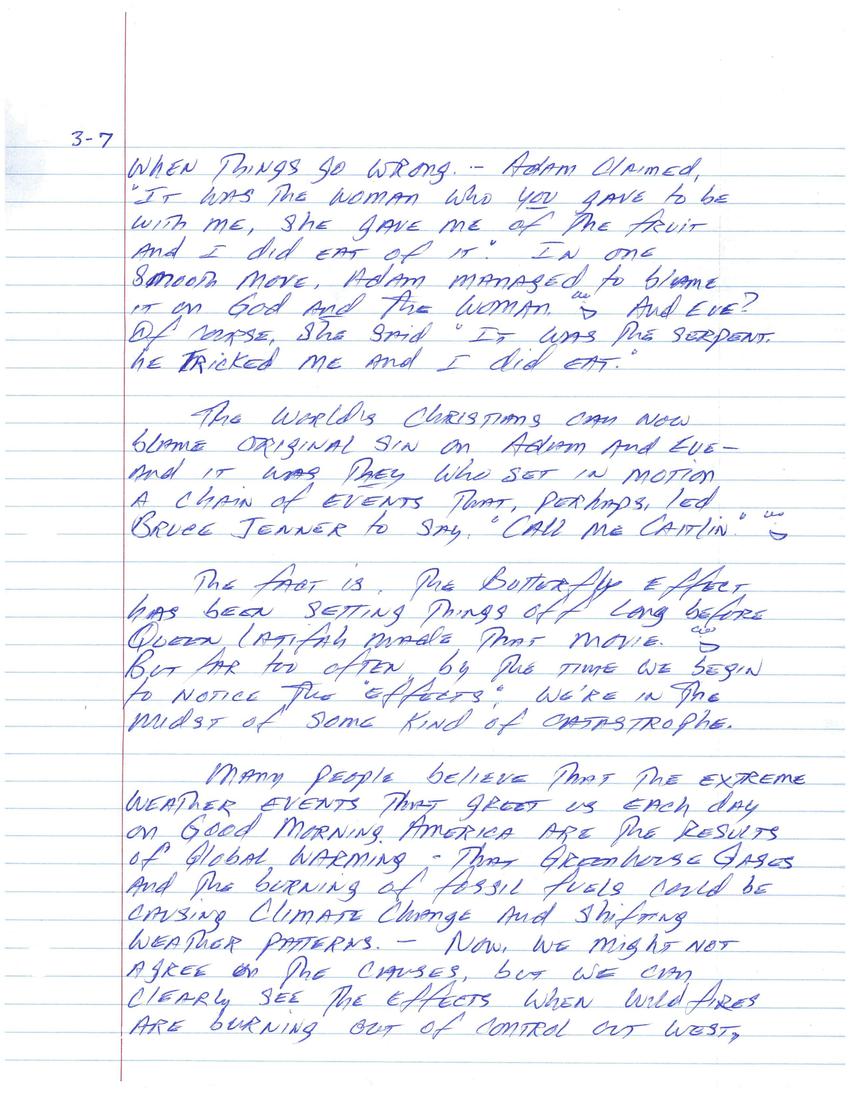 3-7
WHEN THINGS GO WRONG. — ADAM CLAIMED,
"IT WAS THE WOMAN WHO YOU GAVE to be
with ME, She GAVE ME of THE fRUIT
And I did EAT of IT". IN one
SMOOTH MOVE, ADAM MANAGED to blAME
IT on God And THE WOMAN. And EVE?
Of COURSE, She SAid "IT WAS THE SERPENT.
he TRICKED ME And I did EAT."
The World's ChRISTIANS CAN NOW
blAME ORIGINAL SIN on AdAM And EVE—
And IT WAS THEY Who SET IN MOTION
A ChAIN of EVENTS THAT, PERHAPS, led
BRUCE JENNER to SAY, "CALL ME CAITLIN."
The fACT is, The BUTTERfly EffECT
hAS bEEN SETTING ThINGS off LONG before
QUEEN LATIfAh MADE THAT MOVIE.
BUT fAR too ofTEN, by THE TIME WE bEGIN
to NOTICE The "EffECTS", WE'RE IN The
MIdST of SOME KINd of CATASTROPhE.
MANY PEOPlE bELIEVE THAT THE EXTREME
WEATHER EVENTS THAT GREET us EACh dAY
on Good MORNING AMERICA ARE The RESULTS
of GlobAL WARMING - THAT GREENhouse GASES
And The bURNING of fOSSIL fuELS could be
CAUSING CLIMATE ChANGE And ShifTING
WEATHER PATTERNS. — Now, WE MIGhT NOT
AGREE on The CAUSES, bUT WE CAN
CLEARLY SEE THE EffECTS WhEN Wild fIRES
ARE bURNING OUT of CONTROL OUT WEST,